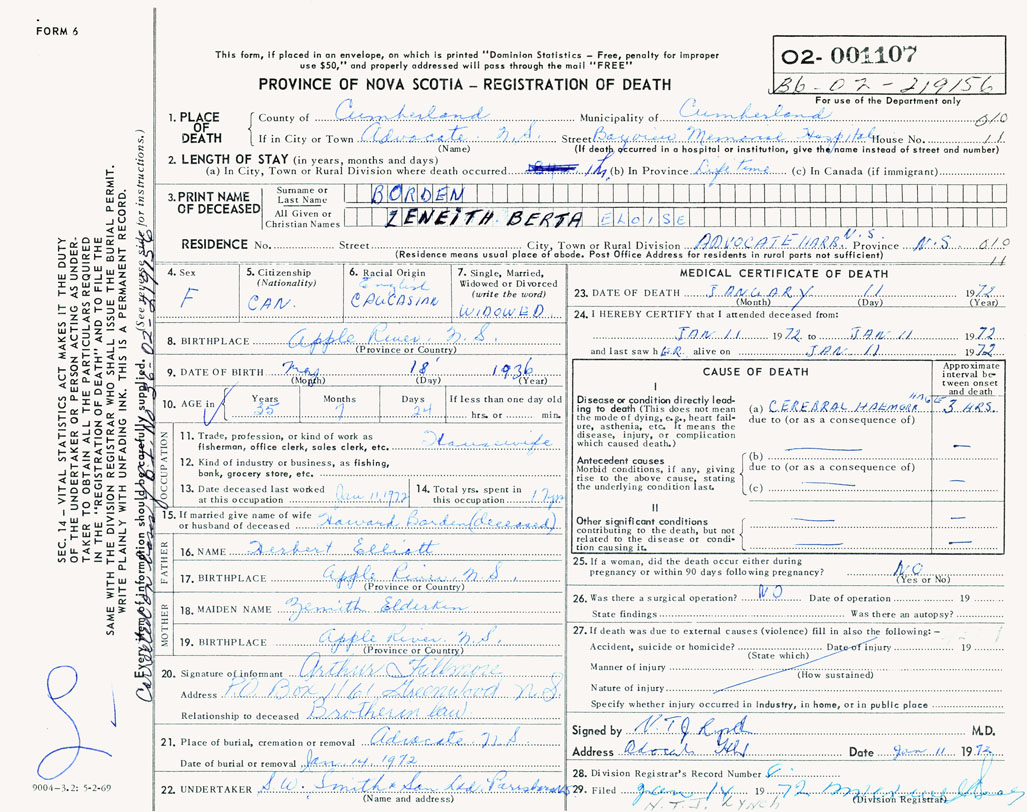 FORM 6
This form, if placed in an envelope, on which is printed "Dominion Statistics – Free, penalty for improper
use $50," and properly addressed will pass through the mail "FREE"
PROVINCE OF NOVA SCOTIA – REGISTRATION OF DEATH
02- 001107
B6-02-219156
For use of the Department only
1. PLACE OF DEATH
County of Cumberland Municipality of Cumberland 010
If in City or Town Advocate N.S. Street Memorial Hospital House No. 11
(Name) (If death occurred in a hospital or institution, give the name instead of street and number)
2. LENGTH OF STAY (in years, months and days)
(a) In City, Town or Rural Division where death occurred (b) In Province Life time (c) In Canada (if immigrant)
3. PRINT NAME OF DECEASED
Surname or Last Name BORDEN
All Given or Christian Names ZENEITH BERTA ELOISE
RESIDENCE No. Street City, Town or Rural Division ADVOCATE HARB. N.S. Province N.S. 010
(Residence means usual place of abode. Post Office Address for residents in rural parts not sufficient) 11
4. Sex F
5. Citizenship (Nationality) CAN.
6. Racial Origin English CAUCASIAN
7. Single, Married, Widowed or Divorced (write the word) WIDOWED
8. BIRTHPLACE Apple River, N.S.
(Province or Country)
9. DATE OF BIRTH May 18 1936
(Month) (Day) (Year)
10. AGE in Years 35 Months 7 Days 24 If less than one day old hrs. or min.
OCCUPATION
11. Trade, profession, or kind of work as fisherman, office clerk, sales clerk, etc. Housewife
12. Kind of industry or business, as fishing, bank, grocery store, etc.
13. Date deceased last worked at this occupation Jan 11, 1972
14. Total yrs. spent in this occupation
15. If married give name of wife or husband of deceased Howard Borden (deceased)
FATHER
16. NAME Herbert Elliott
17. BIRTHPLACE Apple River, N.S.
(Province or Country)
MOTHER
18. MAIDEN NAME Zemith Elderkin
19. BIRTHPLACE Apple River, N.S.
(Province or Country)
20. Signature of informant Arthur Fillmore
Address P.O. Box 1161 Greenwood N.S.
Relationship to deceased Brother in law
21. Place of burial, cremation or removal Advocate N.S.
Date of burial or removal Jan 14, 1972
22. UNDERTAKER S.W. Smith & Son Ltd. Parrsboro
(Name and address)
MEDICAL CERTIFICATE OF DEATH
23. DATE OF DEATH JANUARY 11 1972
(Month) (Day) (Year)
24. I HEREBY CERTIFY that I attended deceased from:
JAN 11 1972 to JAN 11 1972
and last saw hER alive on JAN 11 1972
CAUSE OF DEATH
Approximate interval between onset and death
I
Disease or condition directly leading to death (This does not mean the mode of dying, e.g., heart failure, asthenia, etc. It means the disease, injury, or complication which caused death.)
(a) CEREBRAL HAEMORRHAGE 3 HRS.
due to (or as a consequence of)
Antecedent causes
Morbid conditions, if any, giving rise to the above cause, stating the underlying condition last.
(b)
due to (or as a consequence of)
(c)
II
Other significant conditions
contributing to the death, but not related to the disease or condition causing it.
25. If a woman, did the death occur either during pregnancy or within 90 days following pregnancy? NO
(Yes or No)
26. Was there a surgical operation? NO Date of operation 19
State findings Was there an autopsy?
27. If death was due to external causes (violence) fill in also the following: –
Accident, suicide or homicide? Date of injury 19
(State which)
Manner of injury
(How sustained)
Nature of injury
Specify whether injury occurred in industry, in home, or in public place
Signed by M.D.
Address Date Jan 11 1972
28. Division Registrar's Record Number
29. Filed Jan 14 1972
(Division Registrar)
SEC. 14 – VITAL STATISTICS ACT MAKES IT THE DUTY
OF THE UNDERTAKER OR PERSON ACTING AS UNDERTAKER TO OBTAIN ALL THE PARTICULARS REQUIRED
IN THE "REGISTRATION OF DEATH" AND TO FILE THE
SAME WITH THE DIVISION REGISTRAR WHO SHALL ISSUE THE BURIAL PERMIT.
WRITE PLAINLY WITH UNFADING INK. THIS IS A PERMANENT RECORD.
Every item of information should be carefully supplied. (See reverse side for instructions.)
9004-3.2: 5-2-69